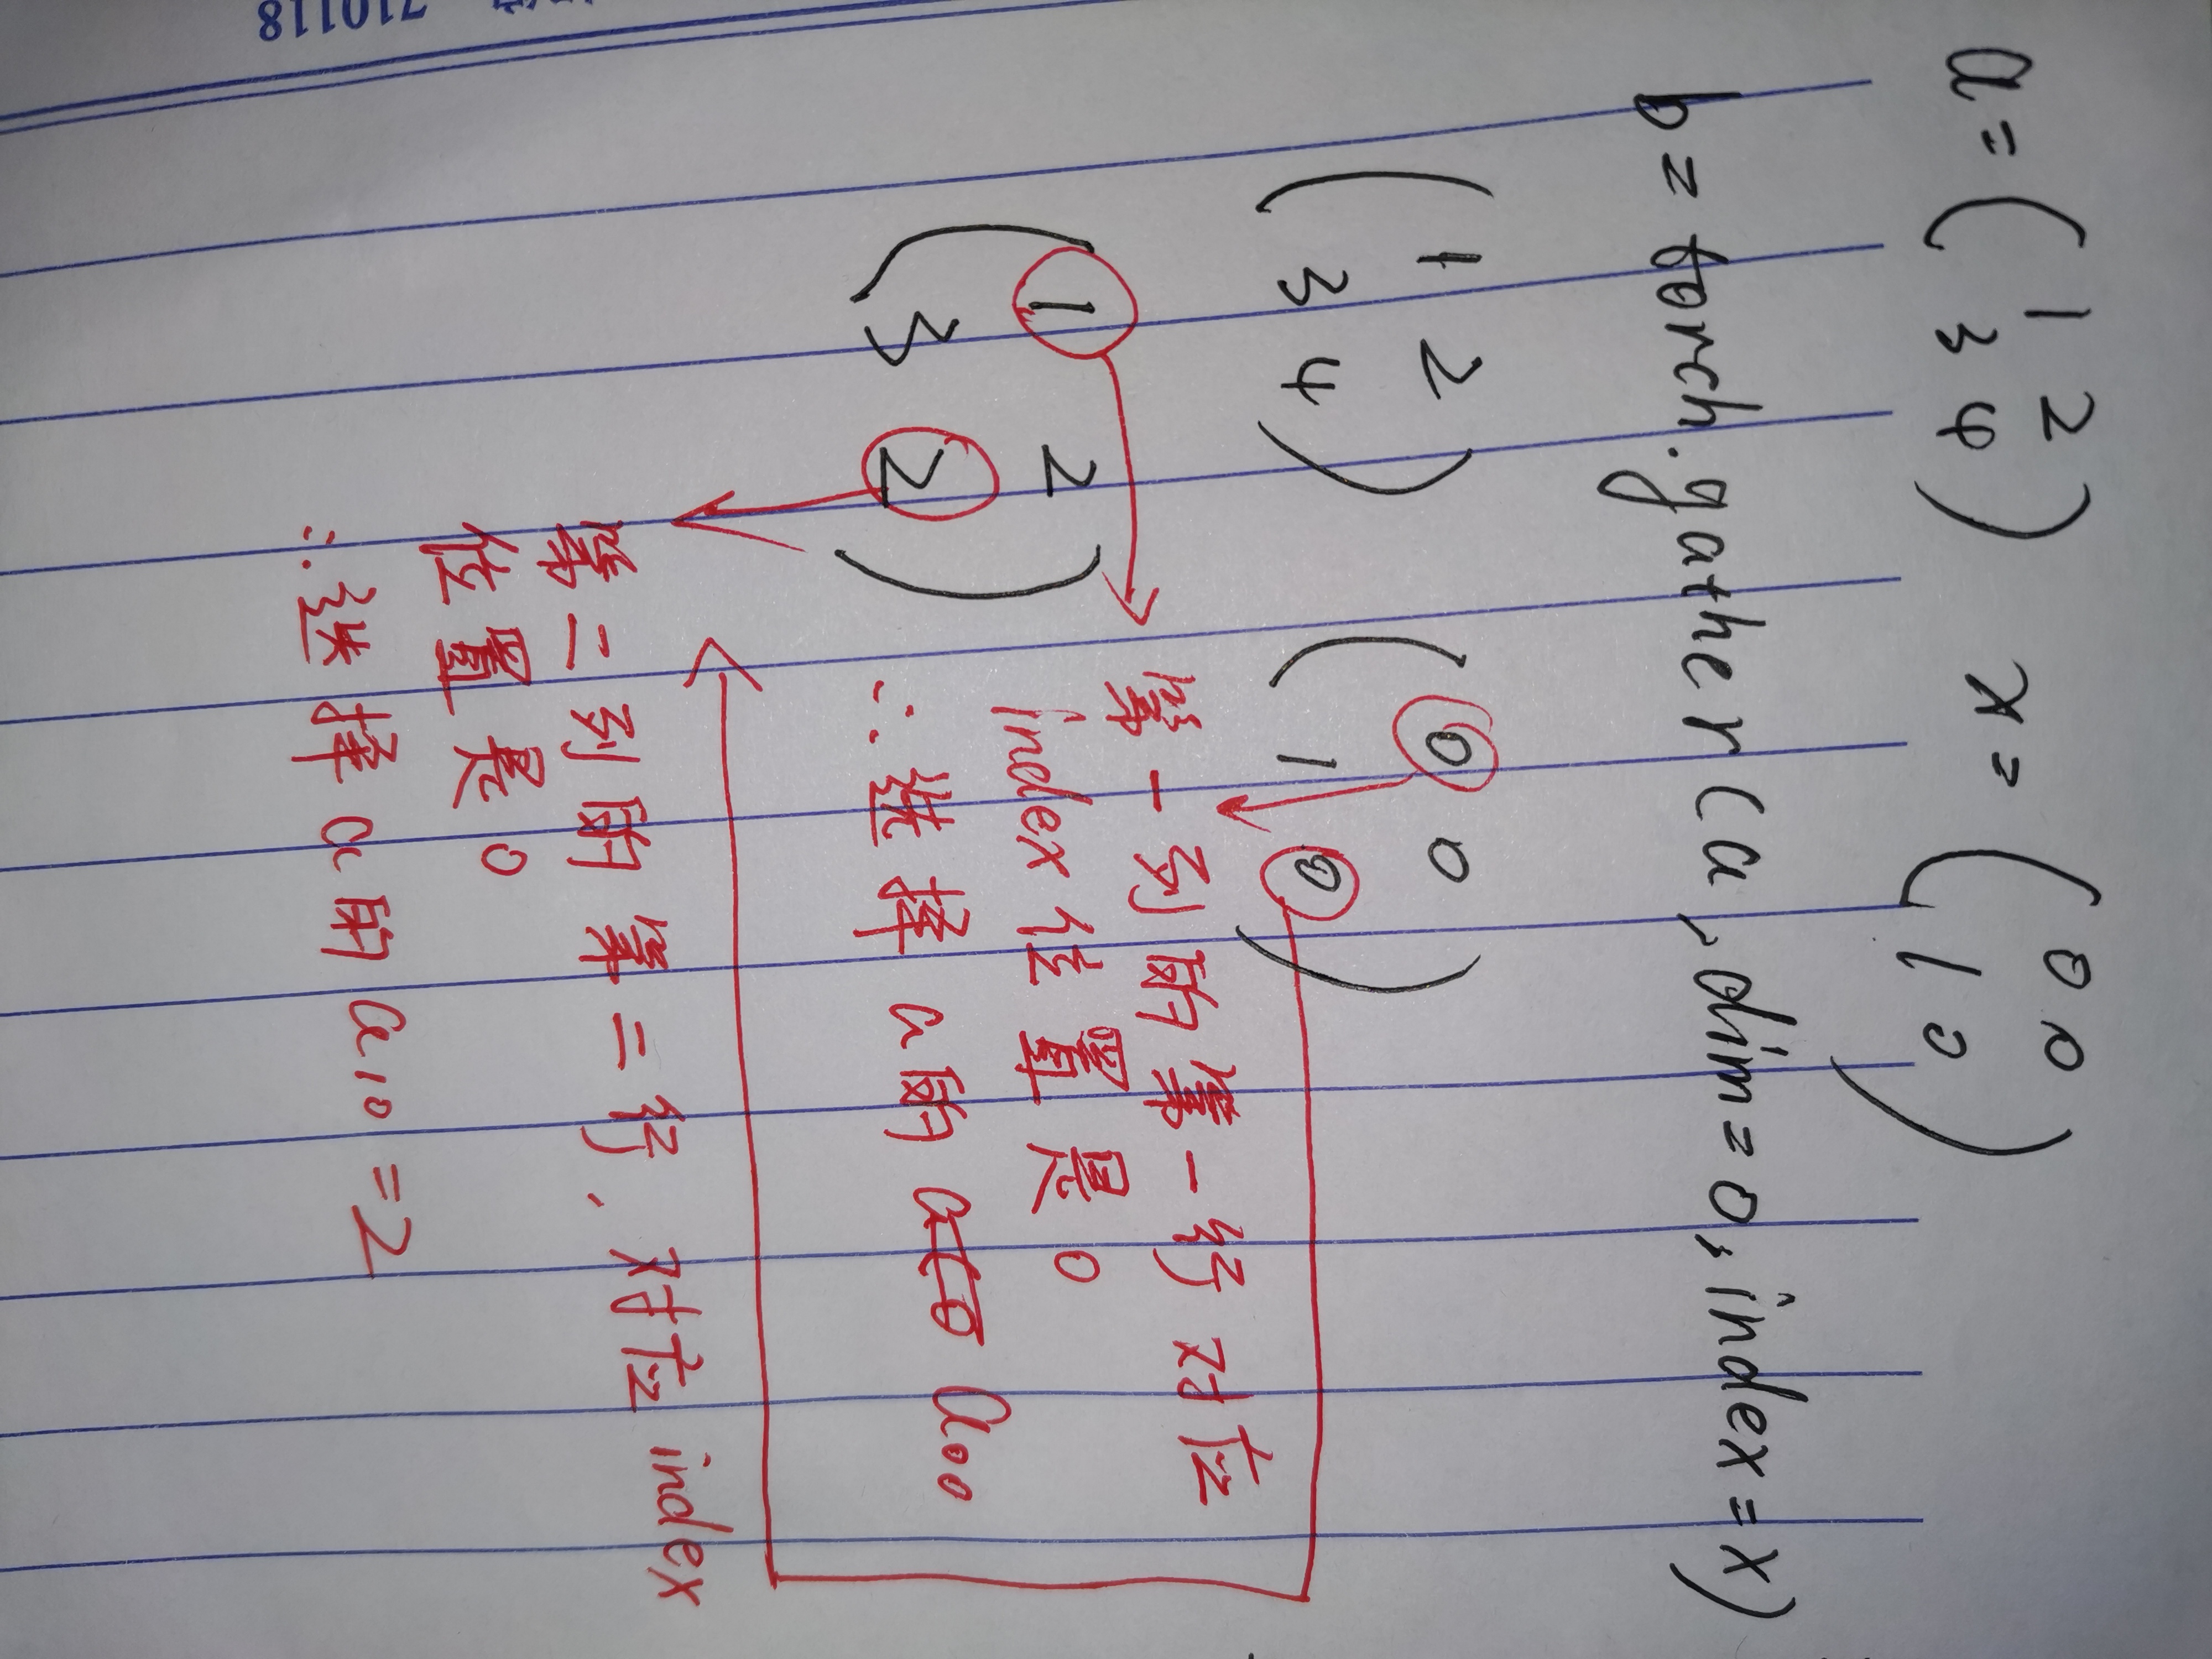 a = ( 1 2 x = ( 0 0
3 4 ) 1 0 )
b = torch.gather(a, dim=0, index=x)
( 1 2 ( 0 0
3 4 ) 1 0 )
第一列的第一行对应
index位置是0
∴选择a的 a00
( 1 2
3 2 )
第二列的第二行,对应index
位置是0
∴选择a的a10=2
710118